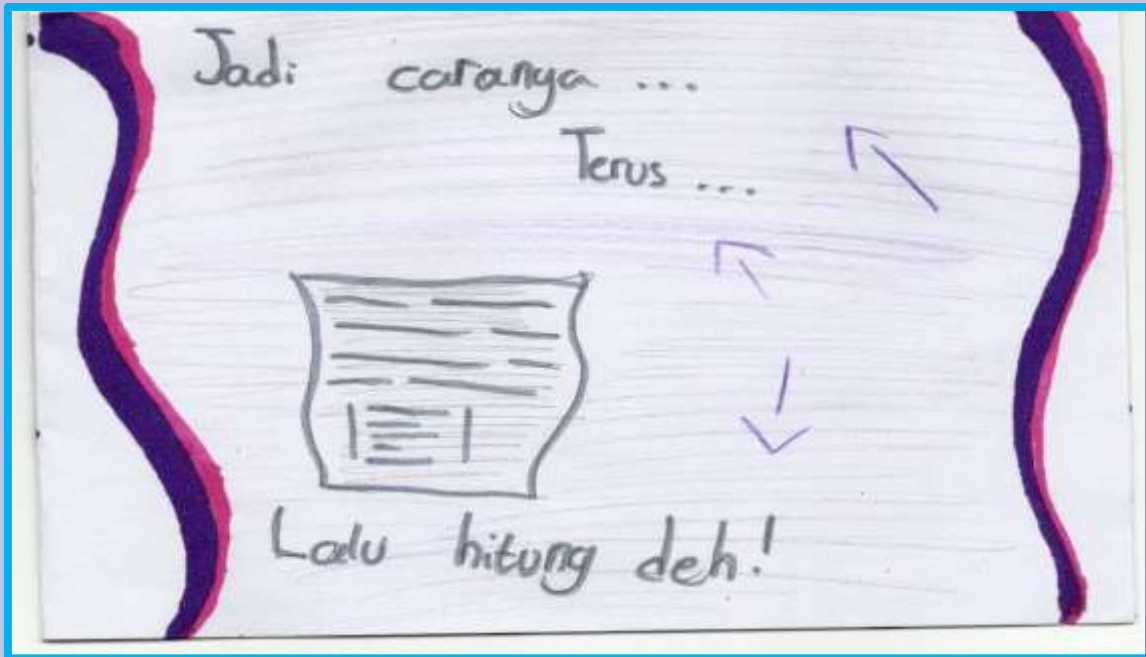 Jadi caranya ...
Terus ...
Lalu hitung deh!